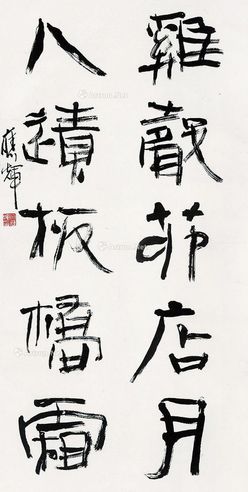 雞聲茆店月
人蹟板橋霜
輝